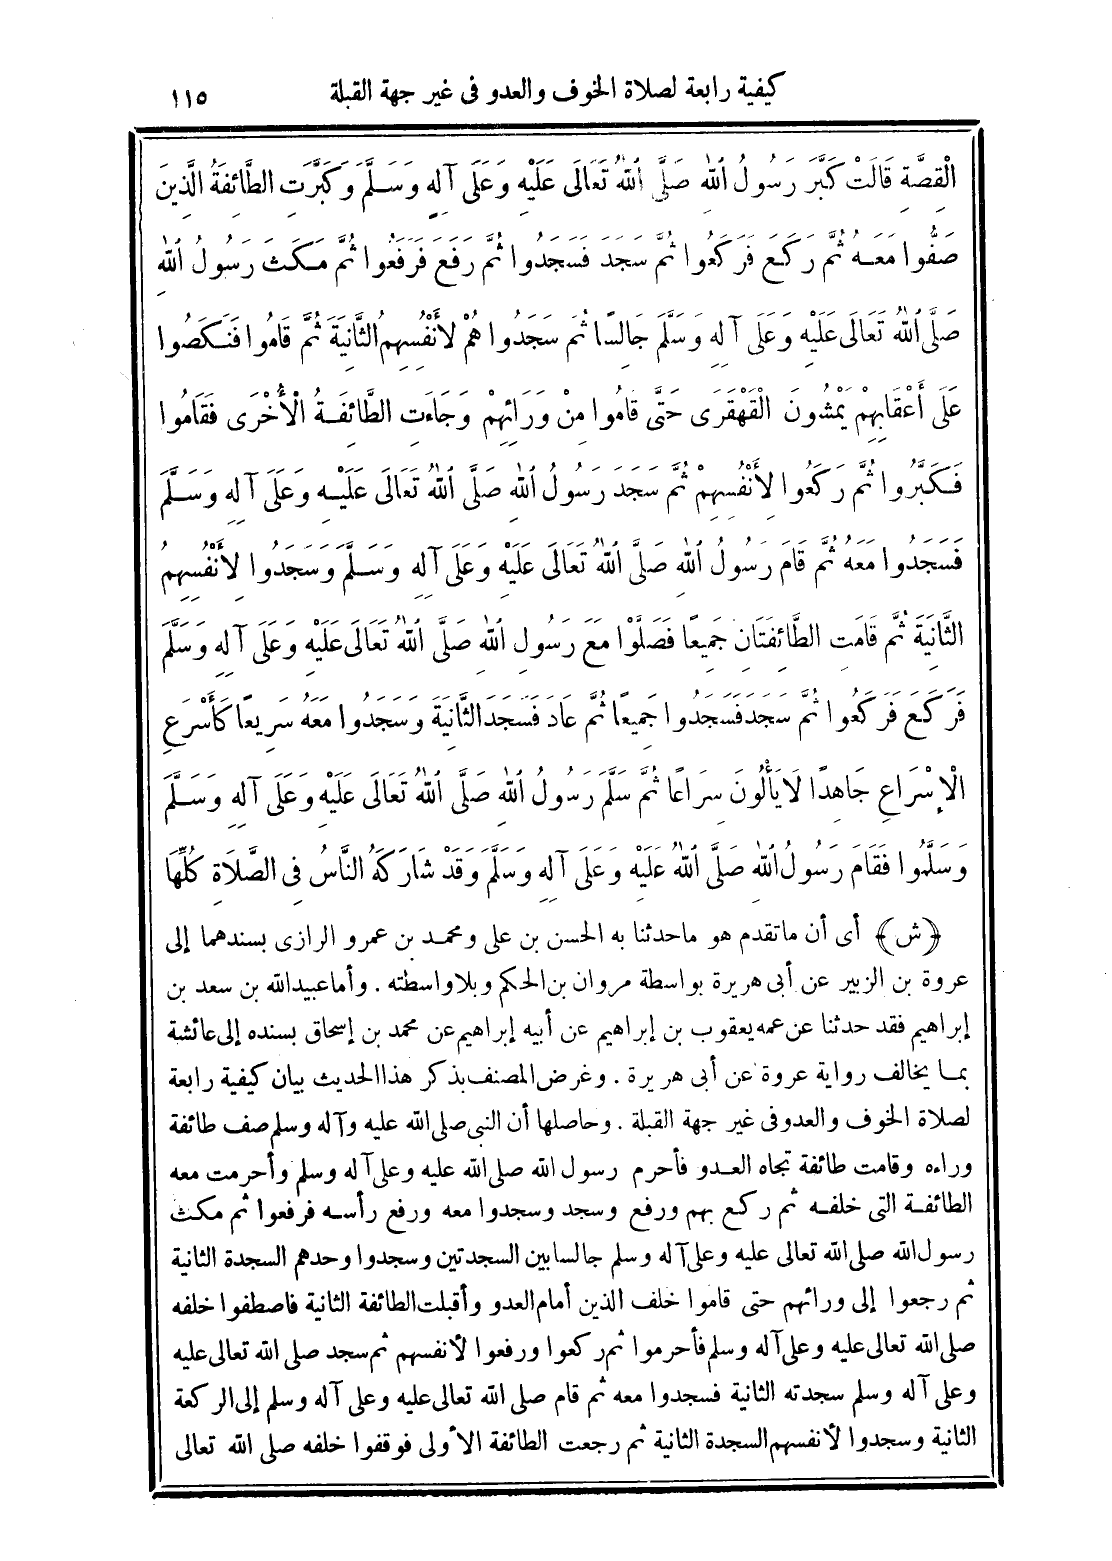 كيفية رابعة لصلاة الخوف والعدو فى غير جهة القبلة
١١٥
الْقِصَّةِ قَالَتْ كَبَّرَ رَسُولُ اللهِ صَلَّى اللهُ تَعَالَى عَلَيْهِ وَعَلَى آلِهِ وَسَلَّمَ وَكَبَّرَتِ الطَّائِفَةُ الَّذِينَ
صَفُّوا مَعَهُ ثُمَّ رَكَعَ فَرَكَعُوا ثُمَّ سَجَدَ فَسَجَدُوا ثُمَّ رَفَعَ فَرَفَعُوا ثُمَّ مَكَثَ رَسُولُ اللهِ
صَلَّى اللهُ تَعَالَى عَلَيْهِ وَعَلَى آلِهِ وَسَلَّمَ جَالِسًا ثُمَّ سَجَدُوا هُمْ لِأَنْفُسِهِمُ الثَّانِيَةَ ثُمَّ قَامُوا فَنَكَصُوا
عَلَى أَعْقَابِهِمْ يَمْشُونَ الْقَهْقَرَى حَتَّى قَامُوا مِنْ وَرَائِهِمْ وَجَاءَتِ الطَّائِفَةُ الْأُخْرَى فَقَامُوا
فَكَبَّرُوا ثُمَّ رَكَعُوا لِأَنْفُسِهِمْ ثُمَّ سَجَدَ رَسُولُ اللهِ صَلَّى اللهُ تَعَالَى عَلَيْهِ وَعَلَى آلِهِ وَسَلَّمَ
فَسَجَدُوا مَعَهُ ثُمَّ قَامَ رَسُولُ اللهِ صَلَّى اللهُ تَعَالَى عَلَيْهِ وَعَلَى آلِهِ وَسَلَّمَ وَسَجَدُوا لِأَنْفُسِهِمُ
الثَّانِيَةَ ثُمَّ قَامَتِ الطَّائِفَتَانِ جَمِيعًا فَصَلَّوْا مَعَ رَسُولِ اللهِ صَلَّى اللهُ تَعَالَى عَلَيْهِ وَعَلَى آلِهِ وَسَلَّمَ
فَرَكَعَ فَرَكَعُوا ثُمَّ سَجَدَ فَسَجَدُوا جَمِيعًا ثُمَّ عَادَ فَسَجَدَ الثَّانِيَةَ وَسَجَدُوا مَعَهُ سَرِيعًا كَأَسْرَعِ
الْإِسْرَاعِ جَاهِدًا لَا يَأْلُونَ سِرَاعًا ثُمَّ سَلَّمَ رَسُولُ اللهِ صَلَّى اللهُ تَعَالَى عَلَيْهِ وَعَلَى آلِهِ وَسَلَّمَ
وَسَلَّمُوا فَقَامَ رَسُولُ اللهِ صَلَّى اللهُ عَلَيْهِ وَعَلَى آلِهِ وَسَلَّمَ وَقَدْ شَارَكَهُ النَّاسُ فِى الصَّلَاةِ كُلِّهَا
﴿ش﴾ أى أن ماتقدم هو ماحدثنا به الحسن بن على ومحمد بن عمرو الرازى بسندهما إلى
عروة بن الزبير عن أبى هريرة بواسطة مروان بن الحكم وبلاواسطته . وأما عبيدالله بن سعد بن
إبراهيم فقد حدثنا عن عمه يعقوب بن إبراهيم عن أبيه إبراهيم عن محمد بن إسحاق بسنده إلى عائشة
بما يخالف رواية عروة عن أبى هريرة . وغرض المصنف بذكر هذا الحديث بيان كيفية رابعة
لصلاة الخوف والعدو فى غير جهة القبلة . وحاصلها أن النبى صلى الله عليه وآله وسلم صف طائفة
وراءه وقامت طائفة تجاه العدو فأحرم رسول الله صلى الله عليه وعلى آله وسلم وأحرمت معه
الطائفة التى خلفه ثم ركع بهم ورفع وسجد وسجدوا معه ورفع رأسه فرفعوا ثم مكث
رسول الله صلى الله تعالى عليه وعلى آله وسلم جالسا بين السجدتين وسجدوا وحدهم السجدة الثانية
ثم رجعوا إلى ورائهم حتى قاموا خلف الذين أمام العدو وأقبلت الطائفة الثانية فاصطفوا خلفه
صلى الله تعالى عليه وعلى آله وسلم فأحرموا ثم ركعوا ورفعوا لأنفسهم ثم سجد صلى الله تعالى عليه
وعلى آله وسلم سجدته الثانية فسجدوا معه ثم قام صلى الله تعالى عليه وعلى آله وسلم إلى الركعة
الثانية وسجدوا لأنفسهم السجدة الثانية ثم رجعت الطائفة الأولى فوقفوا خلفه صلى الله تعالى